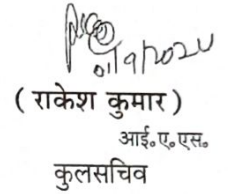 01/9/2020
( राकेश कुमार )
आई.ए.एस.
कुलसचिव